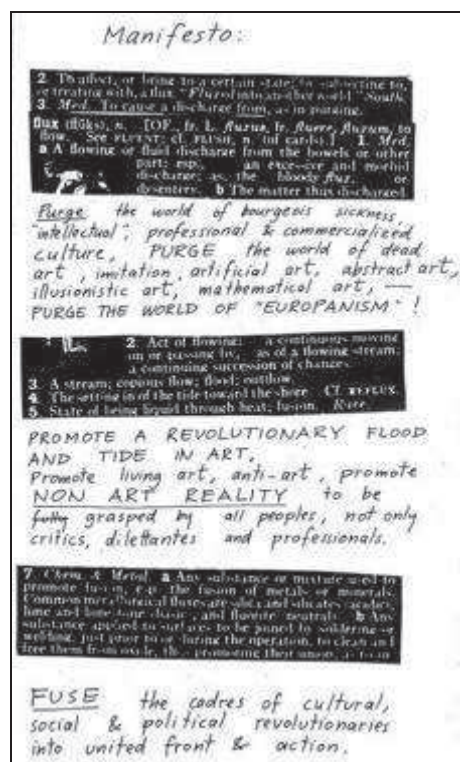 Manifesto:
2. To affect, or bring to a certain state, by subjecting to,
or treating with, a flux. "Fluxed into another world." South.
3. Med. To cause a discharge from, as in purging.
flux (flŭks), n. [OF., fr. L. fluxus, fr. fluere, fluxum, to
flow. See FLUENT; cf. FLUSH, n. (of cards).] 1. Med.
a A flowing or fluid discharge from the bowels or other
part; esp., an excessive and morbid
discharge; as, the bloody flux, or
dysentery. b The matter thus discharged.
Purge the world of bourgeois sickness,
"intellectual", professional & commercialized
culture, PURGE the world of dead
art, imitation, artificial art, abstract art,
illusionistic art, mathematical art, —
PURGE THE WORLD OF "EUROPANISM"!
2. Act of flowing: a continuous moving
on or passing by, as of a flowing stream;
a continuing succession of changes.
3. A stream; copious flow; flood; outflow.
4. The setting in of the tide toward the shore. Cf. REFLUX.
5. State of being liquid through heat; fusion. Rare.
PROMOTE A REVOLUTIONARY FLOOD
AND TIDE IN ART,
Promote living art, anti-art, promote
NON ART REALITY to be
fully grasped by all peoples, not only
critics, dilettantes and professionals.
7. Chem. & Metal. a Any substance or mixture used to
promote fusion, esp. the fusion of metals or minerals.
Common metallurgical fluxes are silica and silicates (acidic),
lime and limestone (basic), and fluorite (neutral). b Any
substance applied to surfaces to be joined by soldering or
welding, just prior to or during the operation, to clean and
free them from oxide, thus promoting their union, as rosin.
FUSE the cadres of cultural,
social & political revolutionaries
into united front & action.